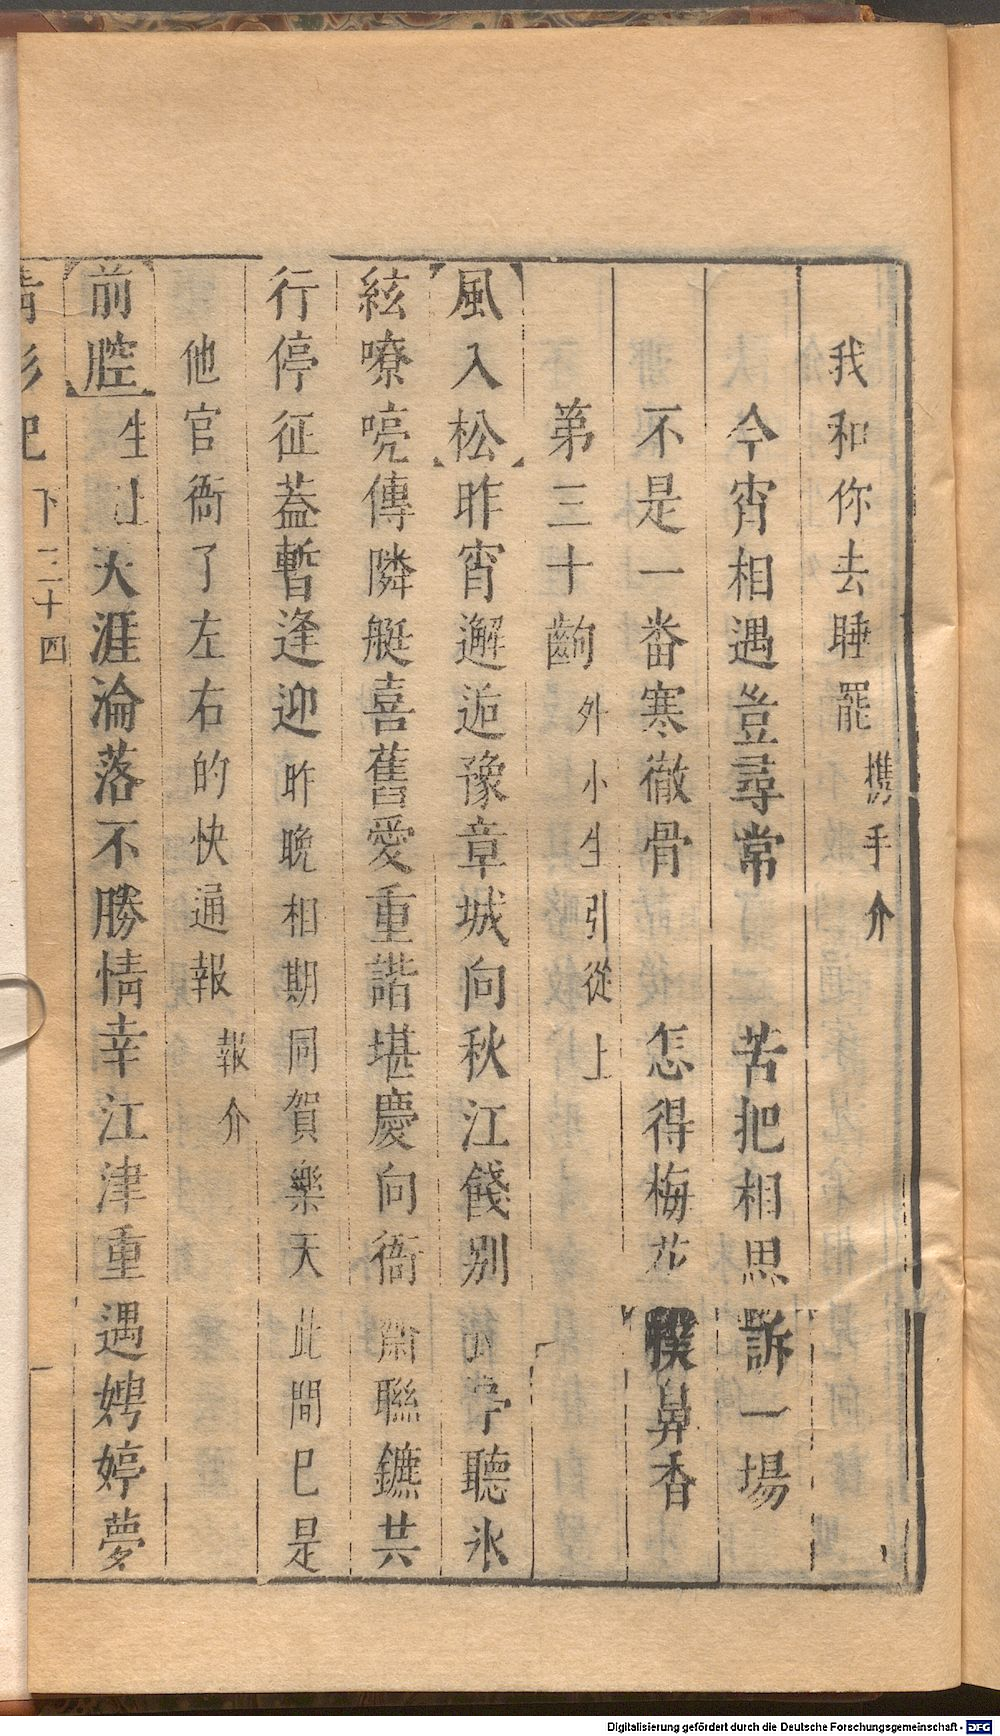 我和你去睡罷携手介
今宵相遇豈尋常 苦把相思訴一塲
不是一畨寒徹骨 怎得梅花撲鼻香
第三十齣外小生引從上
風入松昨宵邂逅豫章城向秋江餞别 亭聽冰
絃嘹喨傳隣艇喜舊愛重諧堪慶向衙齋聯鑣共
行停征葢暫逢迎昨晚相期同賀樂天此間已是
他官衙了左右的快通報報介
前腔生上天涯淪落不勝情幸江津重遇娉婷夢
青衫記 下 三十四
Digitalisierung gefördert durch die Deutsche Forschungsgemeinschaft - DFG